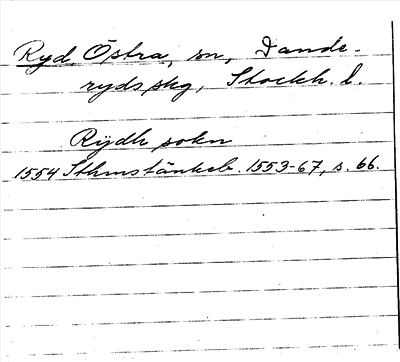 Ryd, Östra, sn, Dande-
ryds skg, Stockh. l.
Rÿdh sokn
1554 Sthmstänkeb. 1553-67, s. 66.